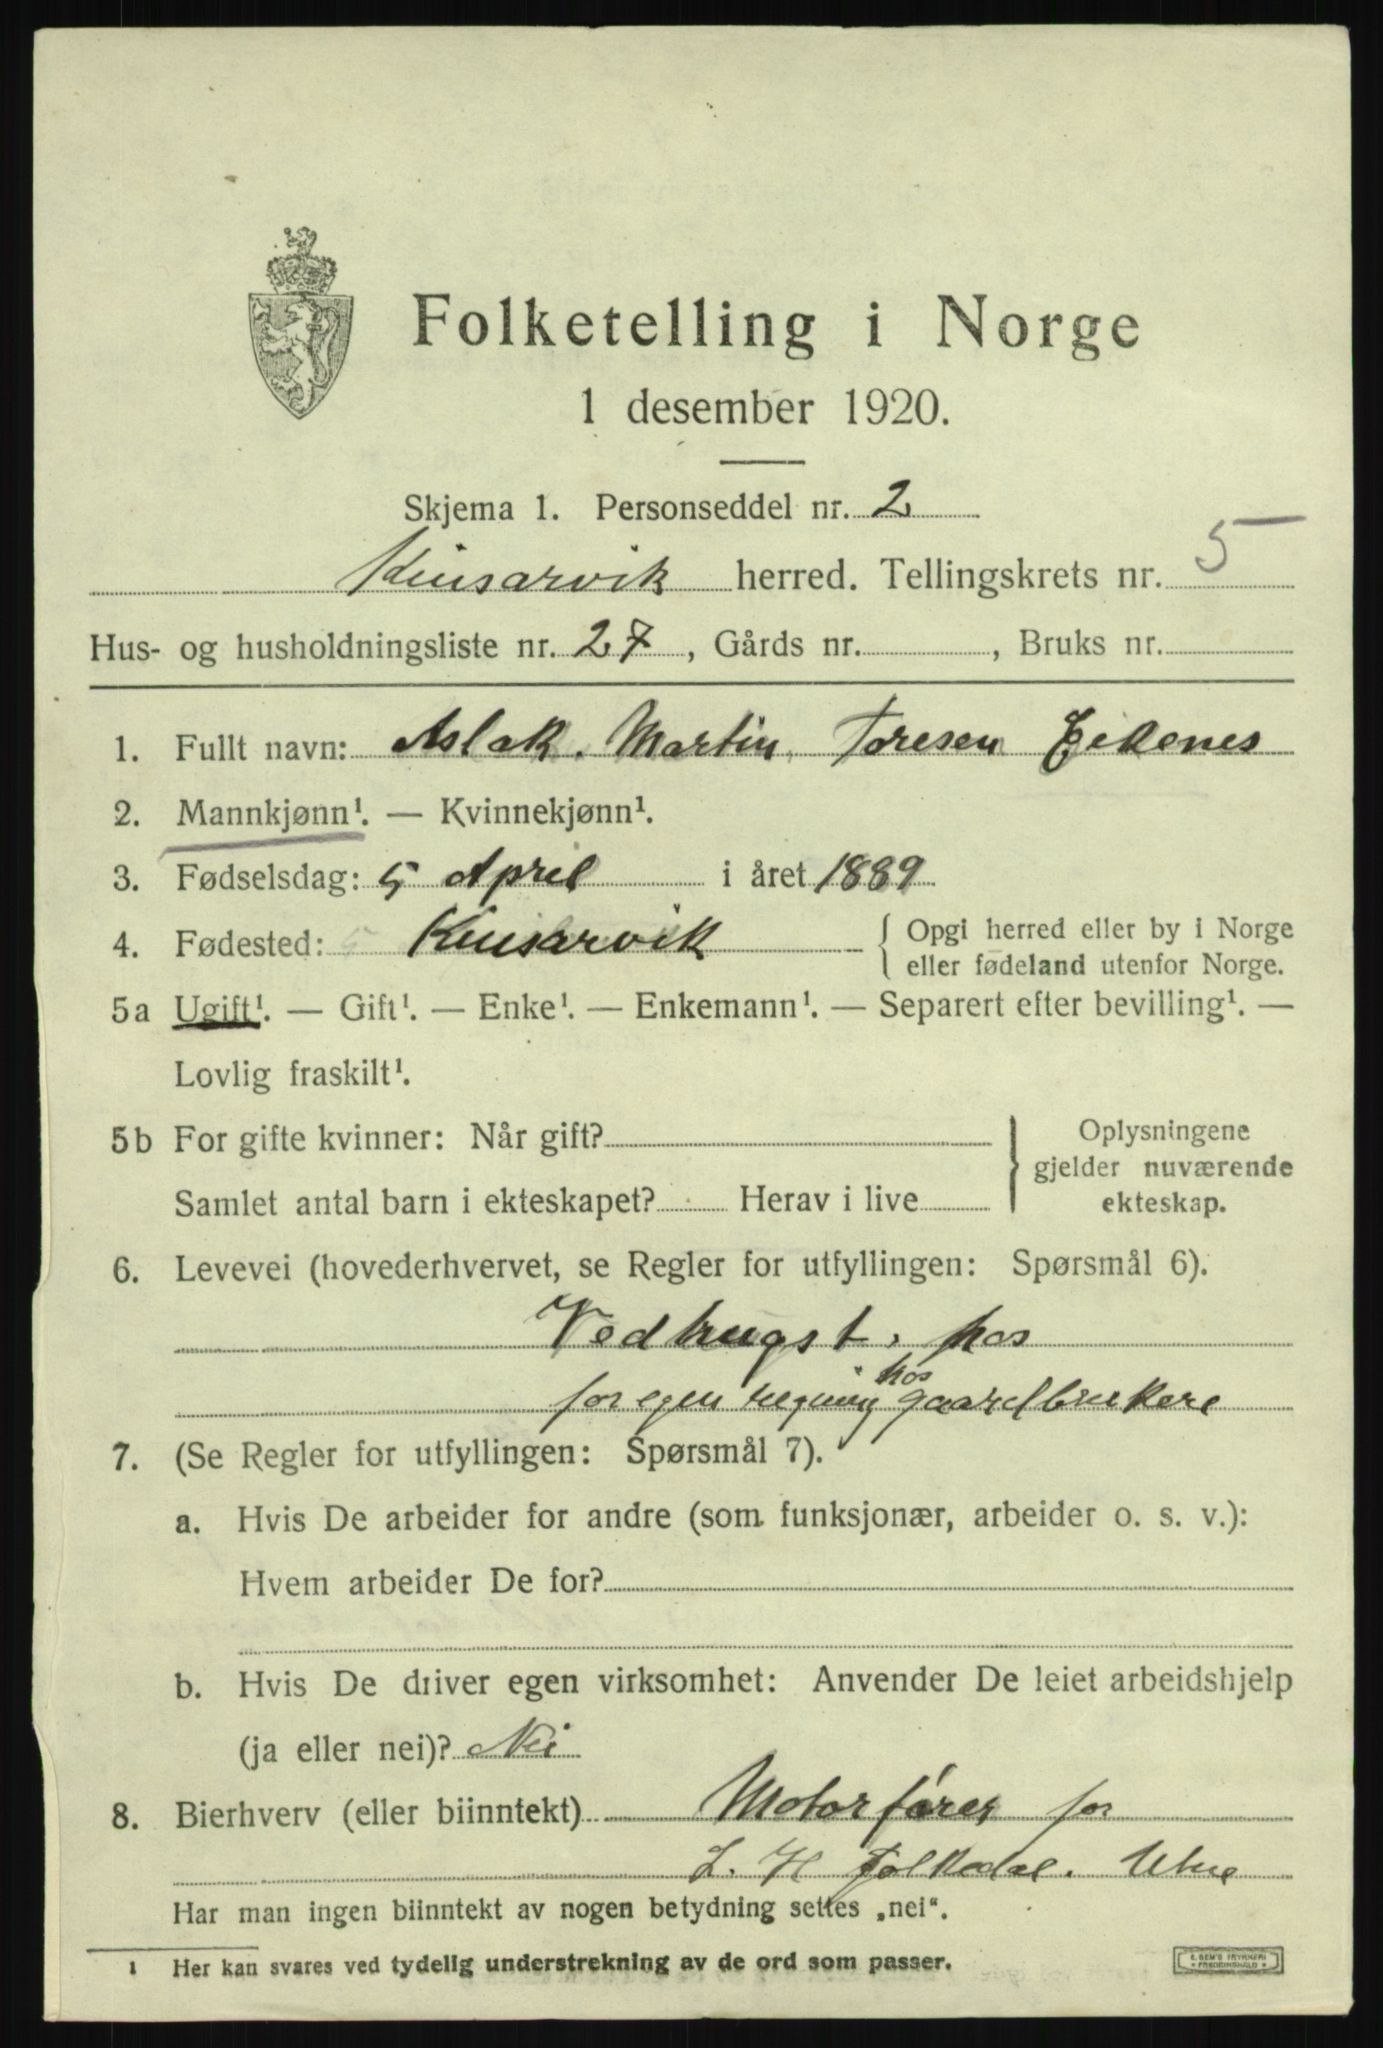 Folketelling i Norge
1 desember 1920.
Skjema 1. Personseddel nr. 2
Kinsarvik herred. Tellingskrets nr. 5
Hus- og husholdningsliste nr. 27, Gårds nr. , Bruks nr.
1. Fullt navn: Aslak. Martin, Toresen Eikenes
2. Mannkjønn¹. — Kvinnekjønn¹.
3. Fødselsdag: 5 April i året 1889
4. Fødested: Kinsarvik { Opgi herred eller by i Norge
eller fødeland utenfor Norge.
5a Ugift¹. — Gift¹. — Enke¹. — Enkemann¹. — Separert efter bevilling¹. —
Lovlig fraskilt¹.
5b For gifte kvinner: Når gift? } Oplysningene
gjelder nuværende
Samlet antal barn i ekteskapet? Herav i live ekteskap.
6. Levevei (hovederhvervet, se Regler for utfyllingen: Spørsmål 6).
Vedhugst, hos
for egen regning hos gaardbrukere
7. (Se Regler for utfyllingen: Spørsmål 7).
a. Hvis De arbeider for andre (som funksjonær, arbeider o. s. v.):
Hvem arbeider De for?
b. Hvis De driver egen virksomhet: Anvender De leiet arbeidshjelp
(ja eller nei)? Nei
8. Bierhverv (eller biinntekt) Motorfører for
L. H Folkedal. Utne
Har man ingen biinntekt av nogen betydning settes „nei“.
1 Her kan svares ved tydelig understrekning av de ord som passer.
E. SEM'S TRYKKERI
FREDRIKSHALD